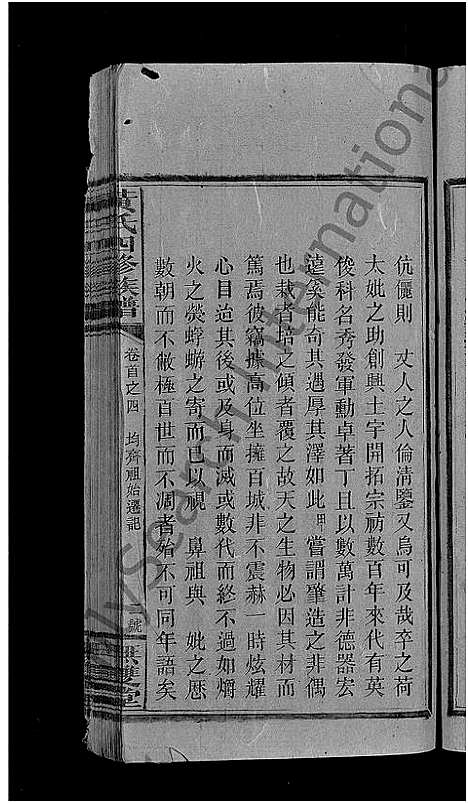 伉儷則　丈人之人倫清鑒又烏可及哉卒之荷
太妣之助創興土宇開拓宗祊數百年來代有英
俊科名秀發軍勳卓著丁且以數萬計非德器宏
遠奚能奇其遇厚其澤如此甲嘗謂肇造之非偶
也栽者培之傾者覆之故天之生物必因其材而
篤焉彼竊據高位坐擁百城非不震赫一時炫耀
心目迨其後或及身而滅或數代而終不過如爝
火之熒蜉蝣之寄而已以視　鼻祖與　妣之厯
數朝而不敝極百世而不凋者殆不可同年語矣
黃氏四修族譜
卷首之四　均齊祖始遷記
號
無雙堂
MySearch International